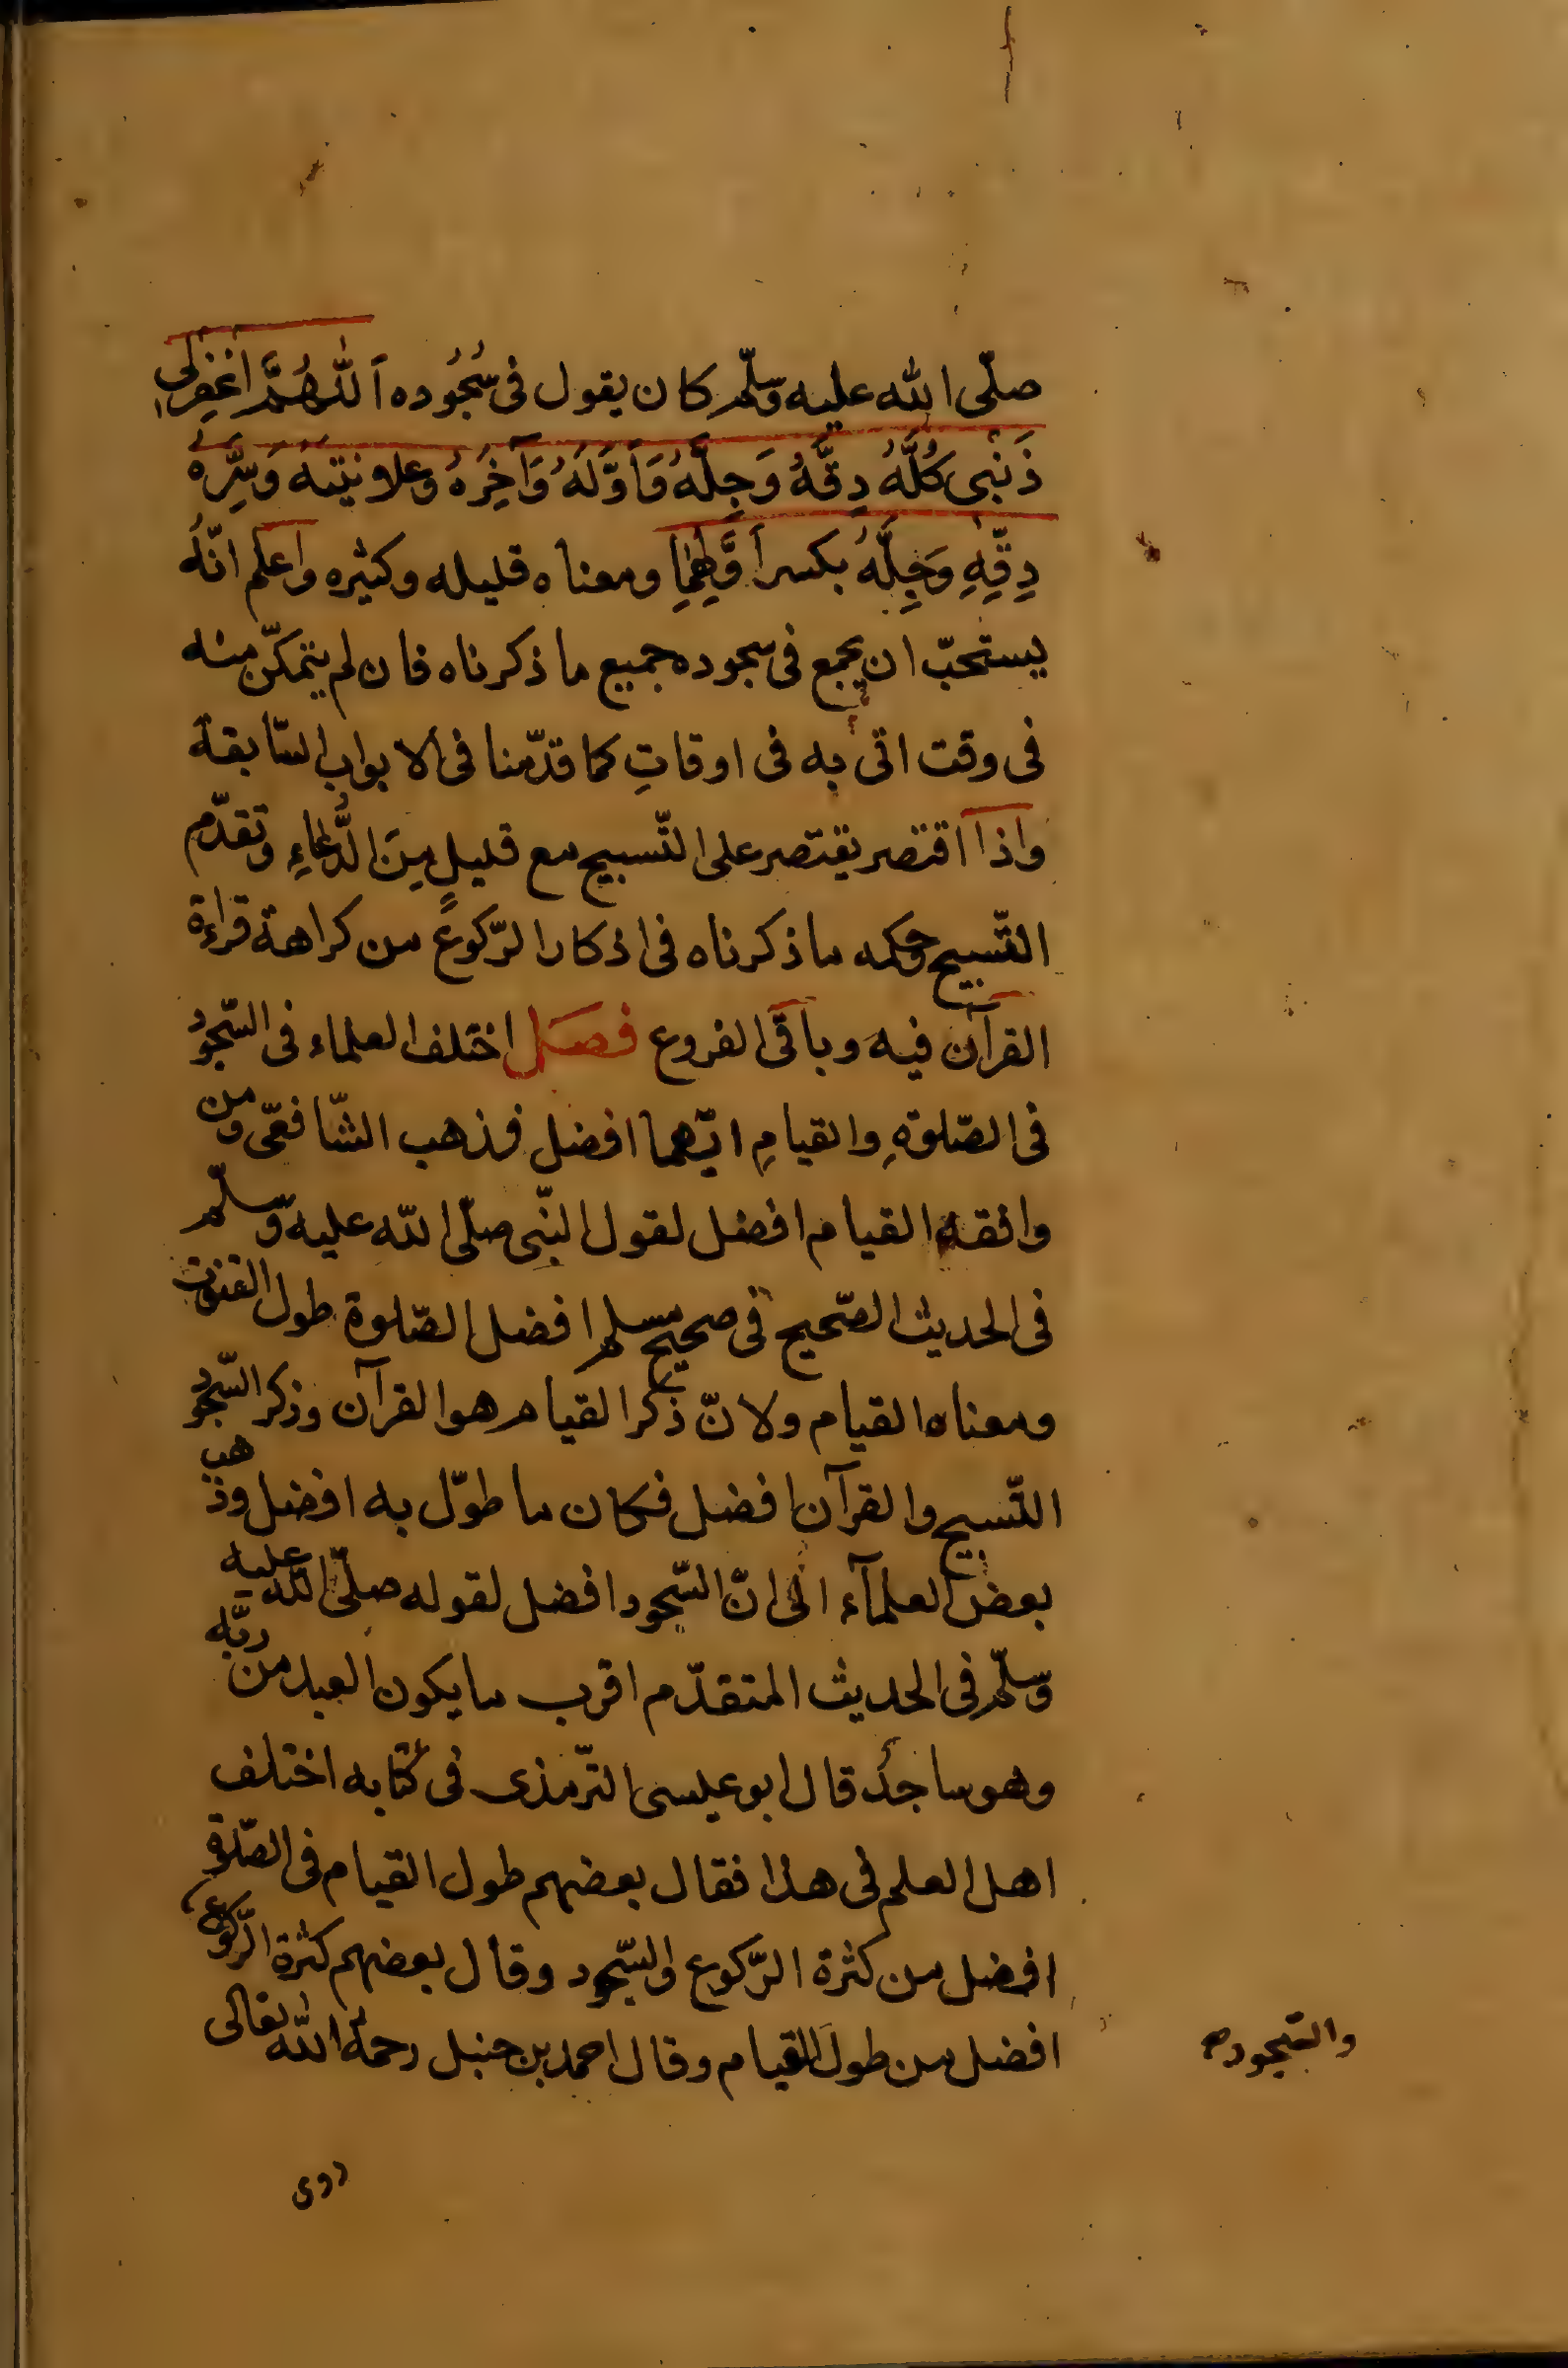 صلّى الله عليه وسلّم كان يقول فى سُجُوده اَللّٰهُمَّ اغْفِرْلِى
ذَنْبِى كُلَّهُ دِقَّهُ وَجِلَّهُ وَاَوَّلَهُ وَآخِرَهُ وعلانيته وَسِرَّهُ
دِقِّهِ وَجِلَّهُ بكسر اَوَّلِهِمَا ومعناه قليله وكثيره واعلم انّهُ
يستحبّ ان يجمع فى سجوده جميع ما ذكرناه فان لم يتمكّن منه
فى وقت اتى به فى اوقاتٍ كما قدّمنا فى الابواب السّابقة
واذا اقتصر يقتصر على التّسبيح مع قليلٍ مِنَ الدُّعاءِ وتقدّم
التّسبيح وحكمه ما ذكرناه فى اذكار الرّكوع من كراهة قراءة
القرآن فيه وباقى الفروع فصل اختلف العلماء فى السّجود
فى الصّلوةِ والقيامِ ايّهما افضل فذهب الشّافعى ومن
وافقه القيام افضل لقول النّبى صلّى الله عليه وسلّم
فى الحديث الصّحيح فى صحيح مسلم افضل الصّلوة طول القنوت
ومعناه القيام ولانّ ذكر القيام هو القرآن وذكر السّجود
التّسبيح والقرآن افضل فكان ما طوّل به افضل وذهب
بعض العلمآء الى انّ السّجود افضل لقوله صلّى الله عليه
وسلّم فى الحديث المتقدّم اقرب ما يكون العبد من ربّه
وهو ساجد قال ابو عيسى التّرمذى فى كتابه اختلف
اهل العلم فى هذا فقال بعضهم طول القيام فى الصّلوة
افضل من كثرة الرّكوع والسّجود وقال بعضهم كثرة الرّكوع
والسّجود صح
افضل من طول القيام وقال احمد بن حنبل رحمة الله تعالى
روى